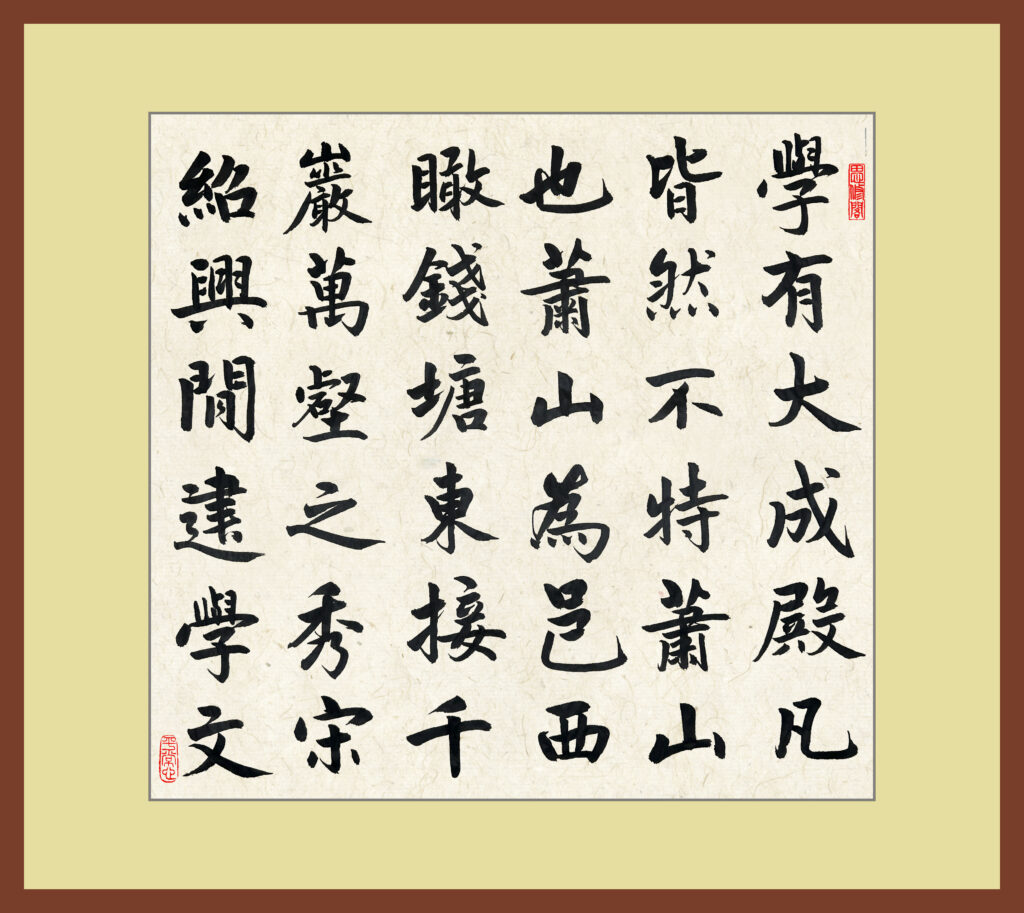 思修閣
學有大成殿凡
皆然不特蕭山
也蕭山為邑西
瞰錢塘東接千
巖萬壑之秀宋
紹興閒建學文
平常心